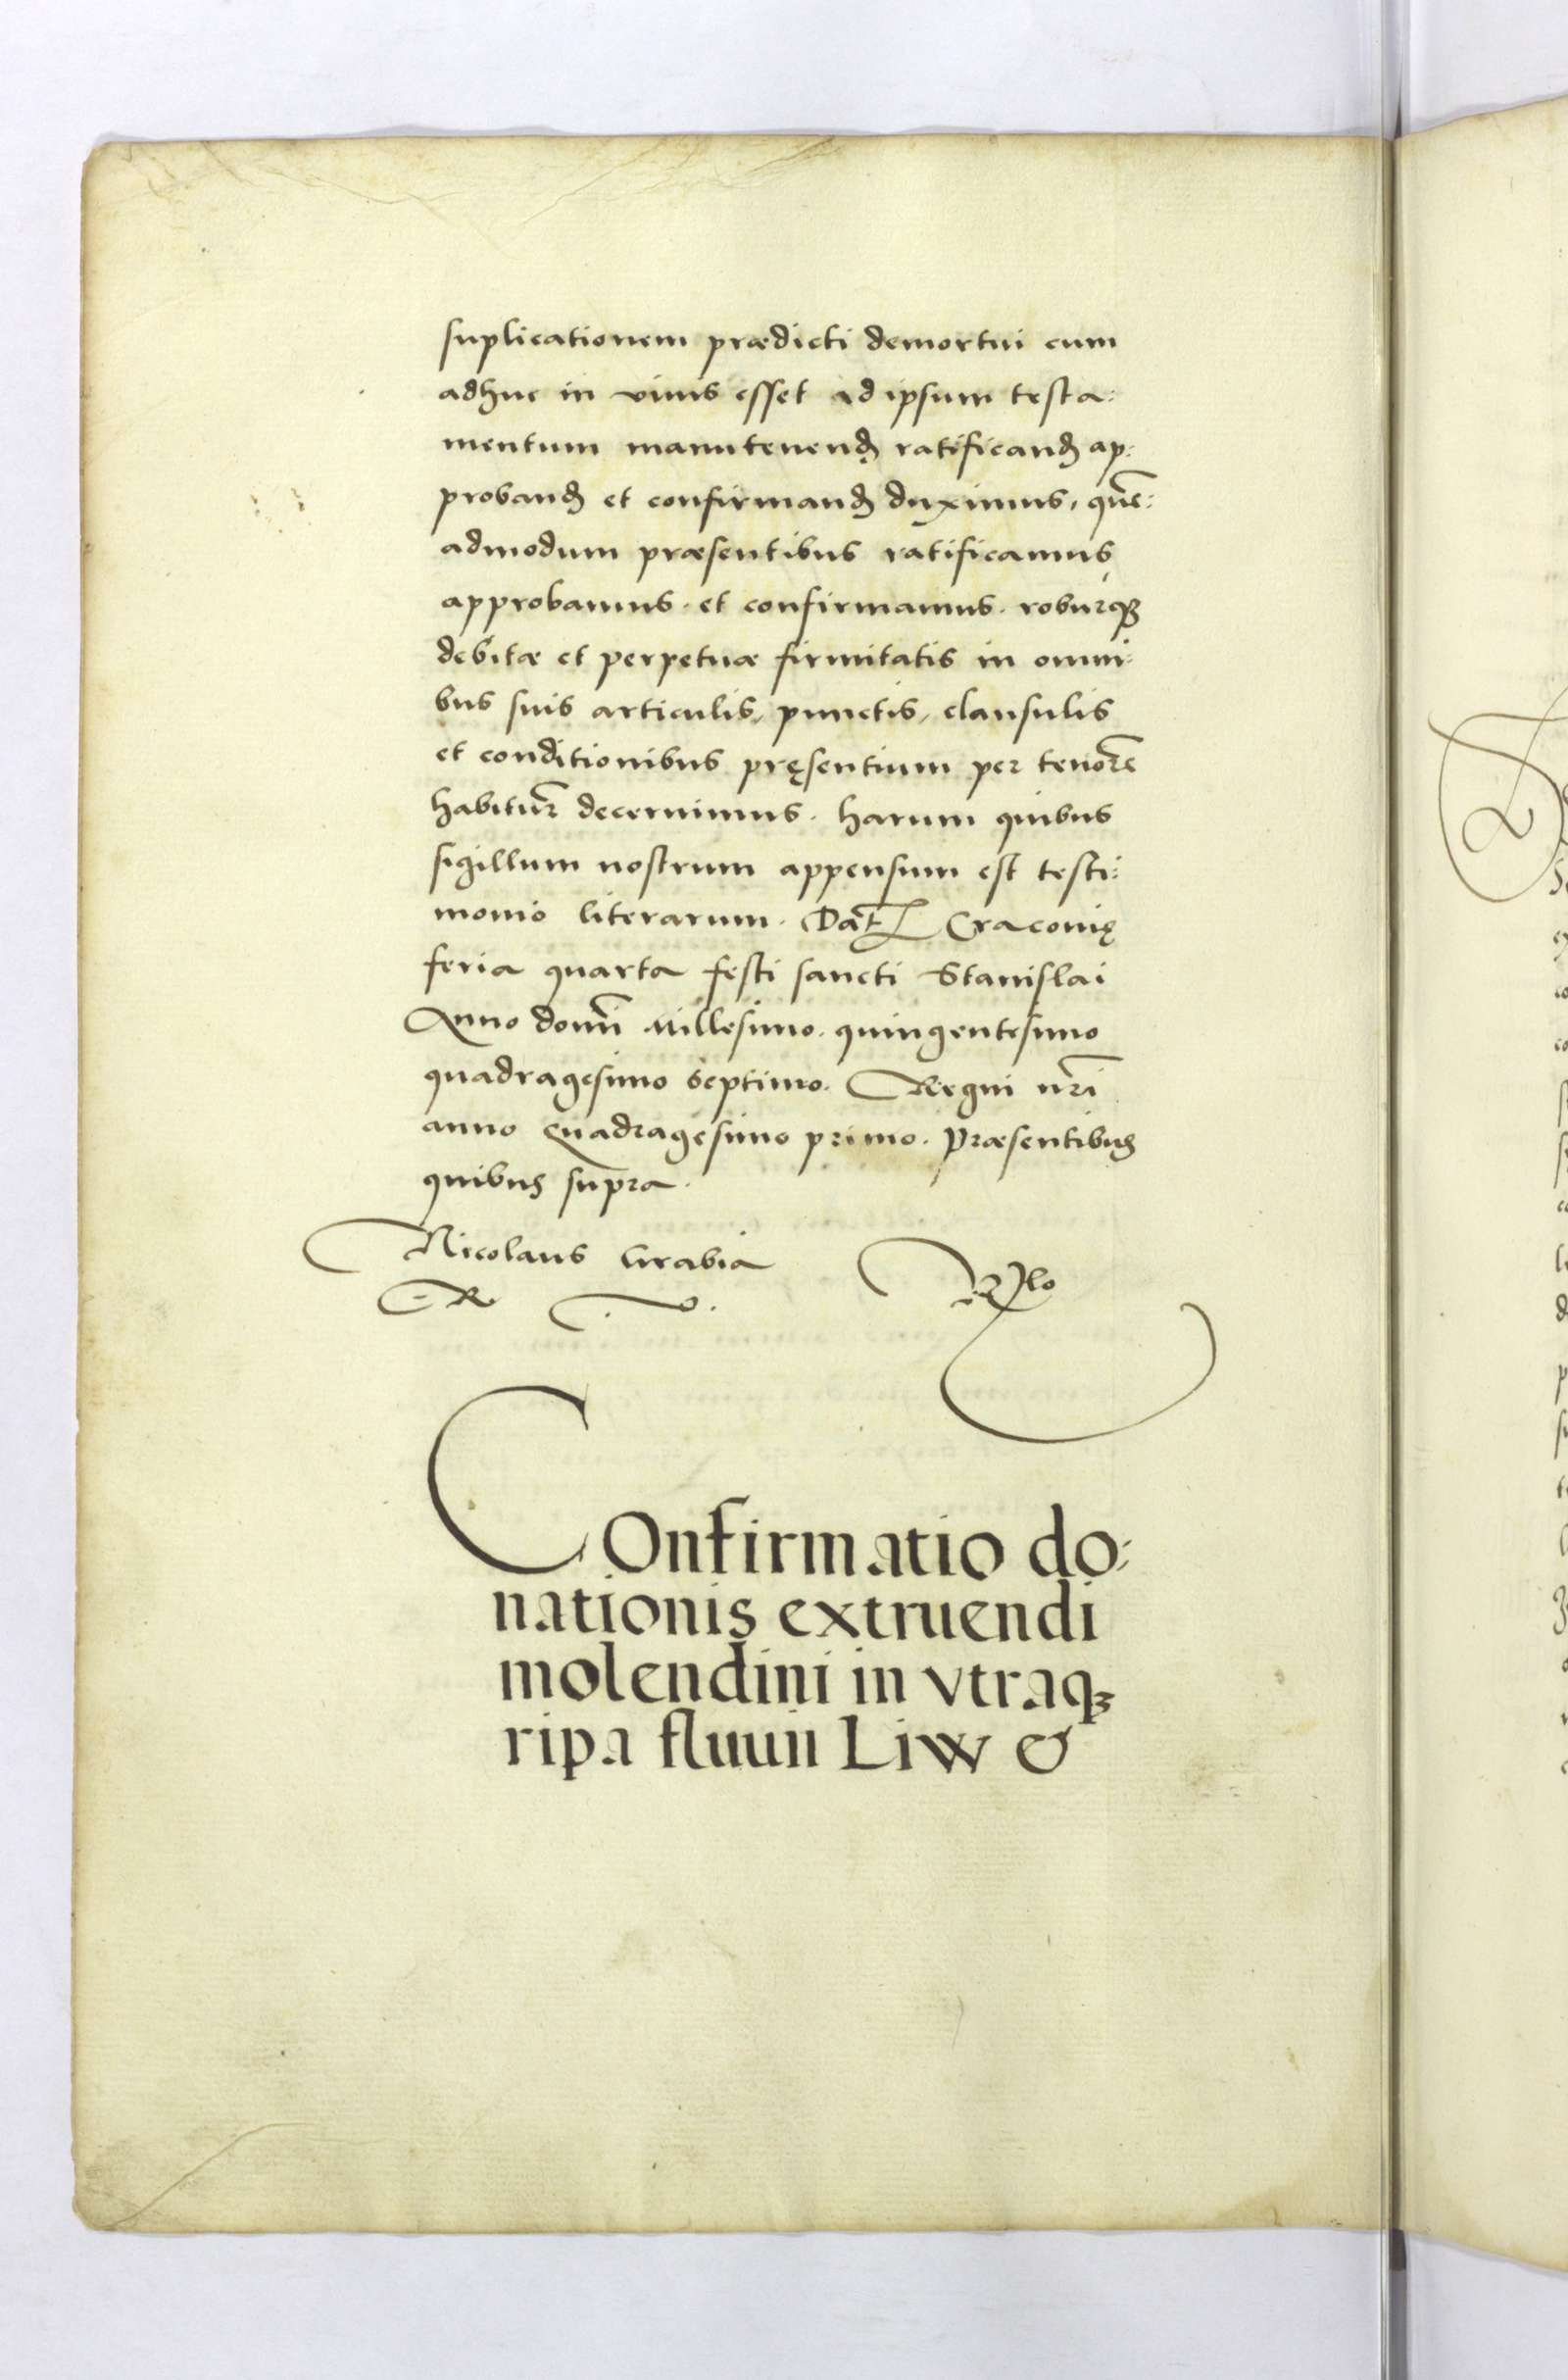 suplicationem prædicti demortui cum
adhuc in viuis esset id ipsum testa:
mentum manutenend ratificand ap:
proband et confirmand duximus, quē:
admodum præsentibus ratificamus
approbamus. et confirmamus. roburq
debitæ et perpetuæ firmitatis in omni:
bus suis articulis, punctis, clausulis
et conditionibus pręsentium per tenorē
habitur̄ decernimus. harum quibus
sigillum nostrum appensum est testi:
monio literarum. Dat̄ Cracouię
feria quarta festi sancti Stanislai
Anno domī Millesimo. quingentesimo
quadragesimo septimo. Regni nr̄i
anno quadragesimo primo. Præsentibus
quibus supra.
Nicolaus Grabia
R
COnfirmatio do:
nationis extruendi
molendini in vtraq
ripa fluuii Liw